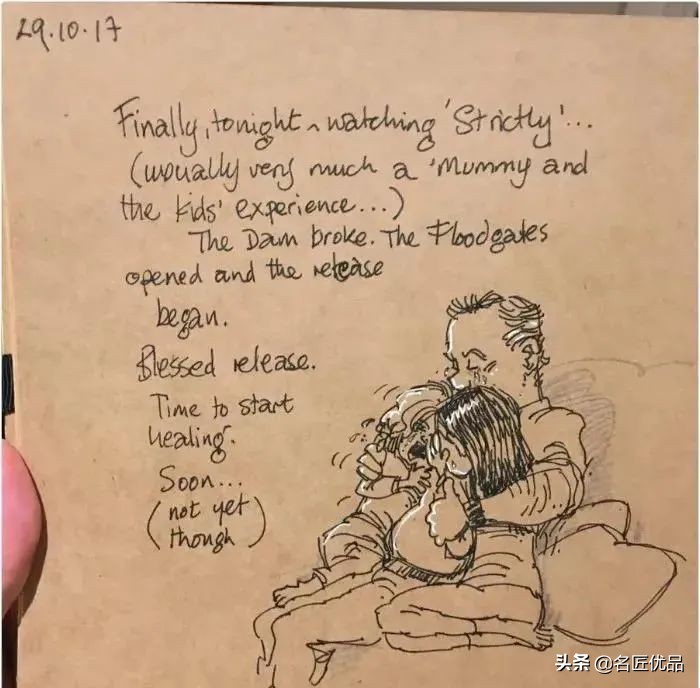 29.10.17
Finally, tonight ~ watching 'Strictly'...
(usually very much a 'Mummy and
the kids' experience...)
The Dam broke. The Floodgates
opened and the release
began.
Blessed release.
Time to start
healing.
Soon...
(not yet
though)
头条 @名匠优品